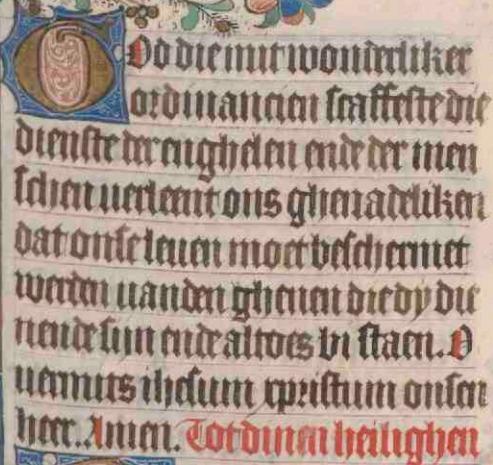 God die mit wonderliker
ordinancien scaffeste die
dienste der enghelen ende der men
schen verleent ons ghenadeliken
dat onse leuen moet beschermet
werden uanden ghenen die dy die
nende sijn ende altoes bi staen. O
uermits ihesum xpristum onsen
heer. Amen. Tot dinen heilighen